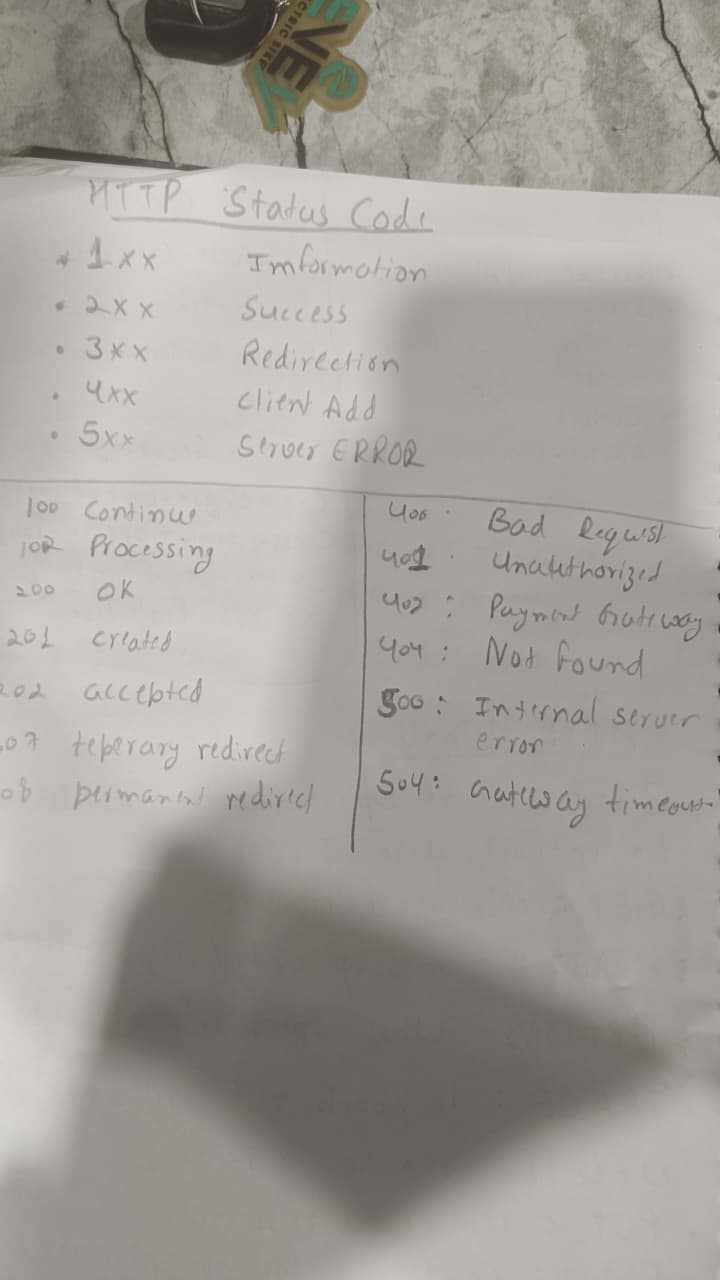 EVE
CTRIC
HTTP Status Code
1xx Imformation
2xx Success
3xx Redirection
4xx Client Add
5xx Server ERROR
100 Continue
102 Processing
200 OK
201 created
202 accepted
07 teperary redirect
08 permanent redirect
400 Bad Request
401 Unauthorized
402 : Payment Gateway
404 : Not found
500 : Internal server
error
504 : Gateway timeout